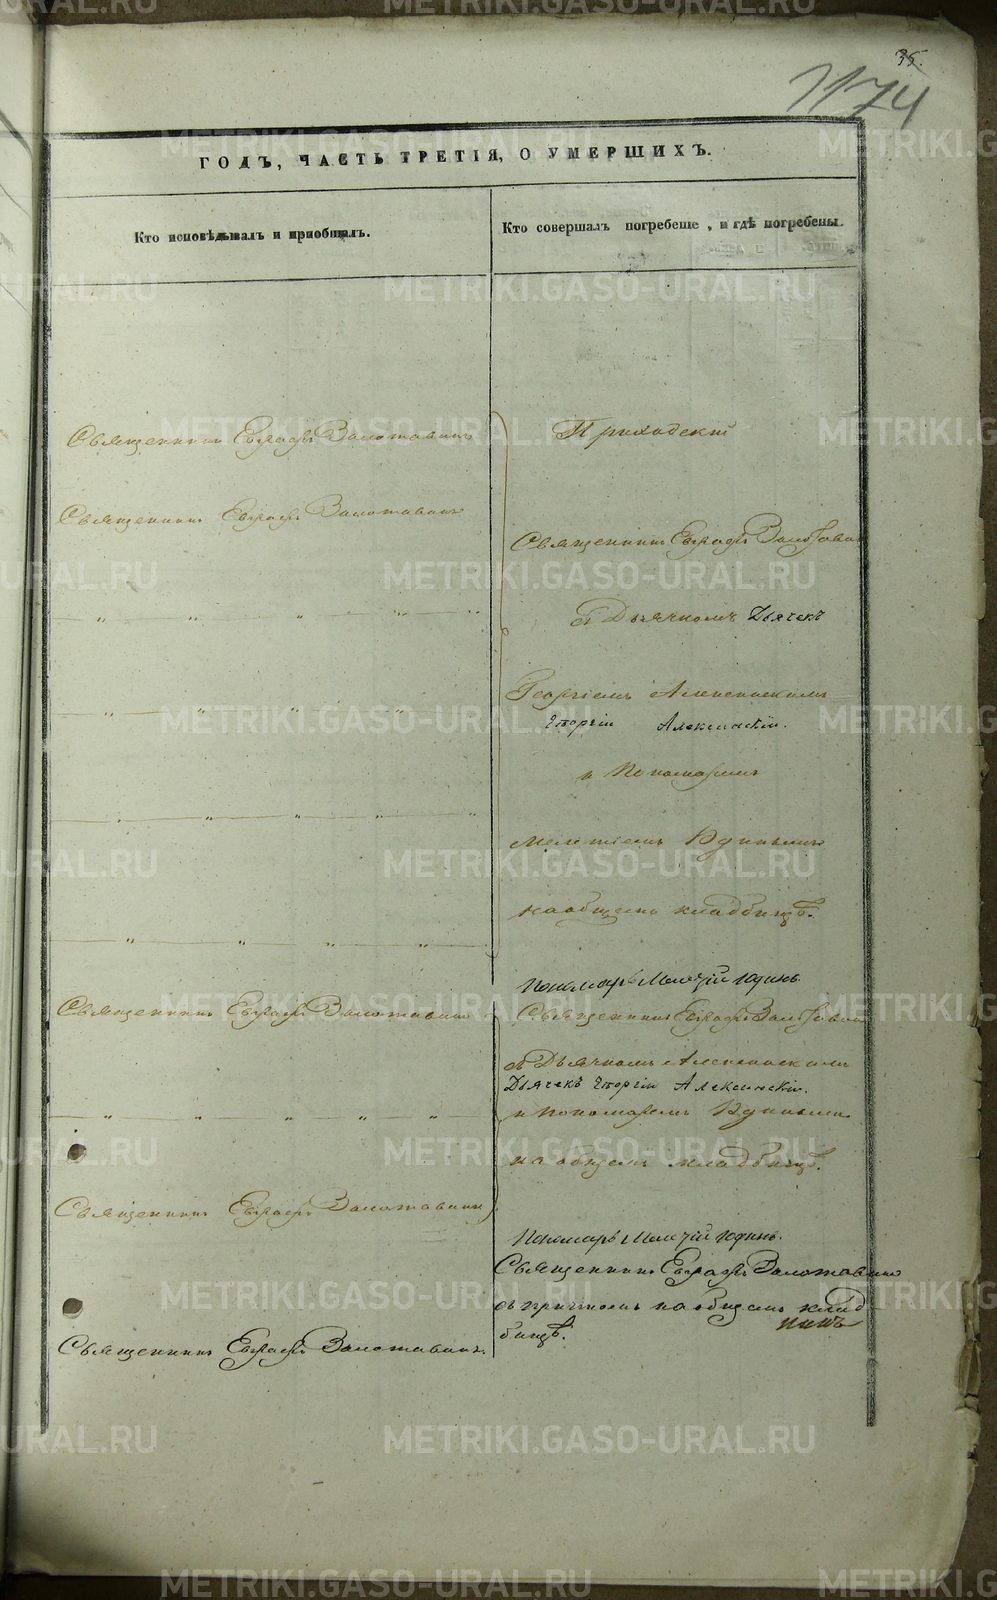 35.
1174
ГОДЪ, ЧАСТЬ ТРЕТІЯ, О УМЕРШИХЪ.
Кто исповѣдывалъ и пріобщалъ.
Кто совершалъ погребеніе, и гдѣ погребены.
Священникъ Евграфъ Золотавинъ
Священникъ Евграфъ Золотавинъ
Священникъ Евграфъ Золотавинъ
Священникъ Евграфъ Золотавинъ
Священникъ Евграфъ Золотавинъ.
Приходскій
Священникъ Евграфъ Золотавин
съ Дьячкомъ Дьячекъ
Георгіемъ Алексинскимъ
Георгій Алексинскій.
и Пономаремъ
Мелетіемъ Юдинымъ
на общемъ кладбищѣ.
Пономарь Мелетій Юдинъ.
Священникъ Евграфъ Золотавин
съ Дьячкомъ Алексинскимъ
Дьячекъ Георгій Алексинскій.
и Пономаремъ Юдинымъ
на общемъ кладбищѣ.
Пономарь Мелетій Юдинъ.
Священникъ Евграфъ Золотавинъ
съ причтомъ на общемъ клад
бищѣ.
METRIKI.GASO-URAL.RU